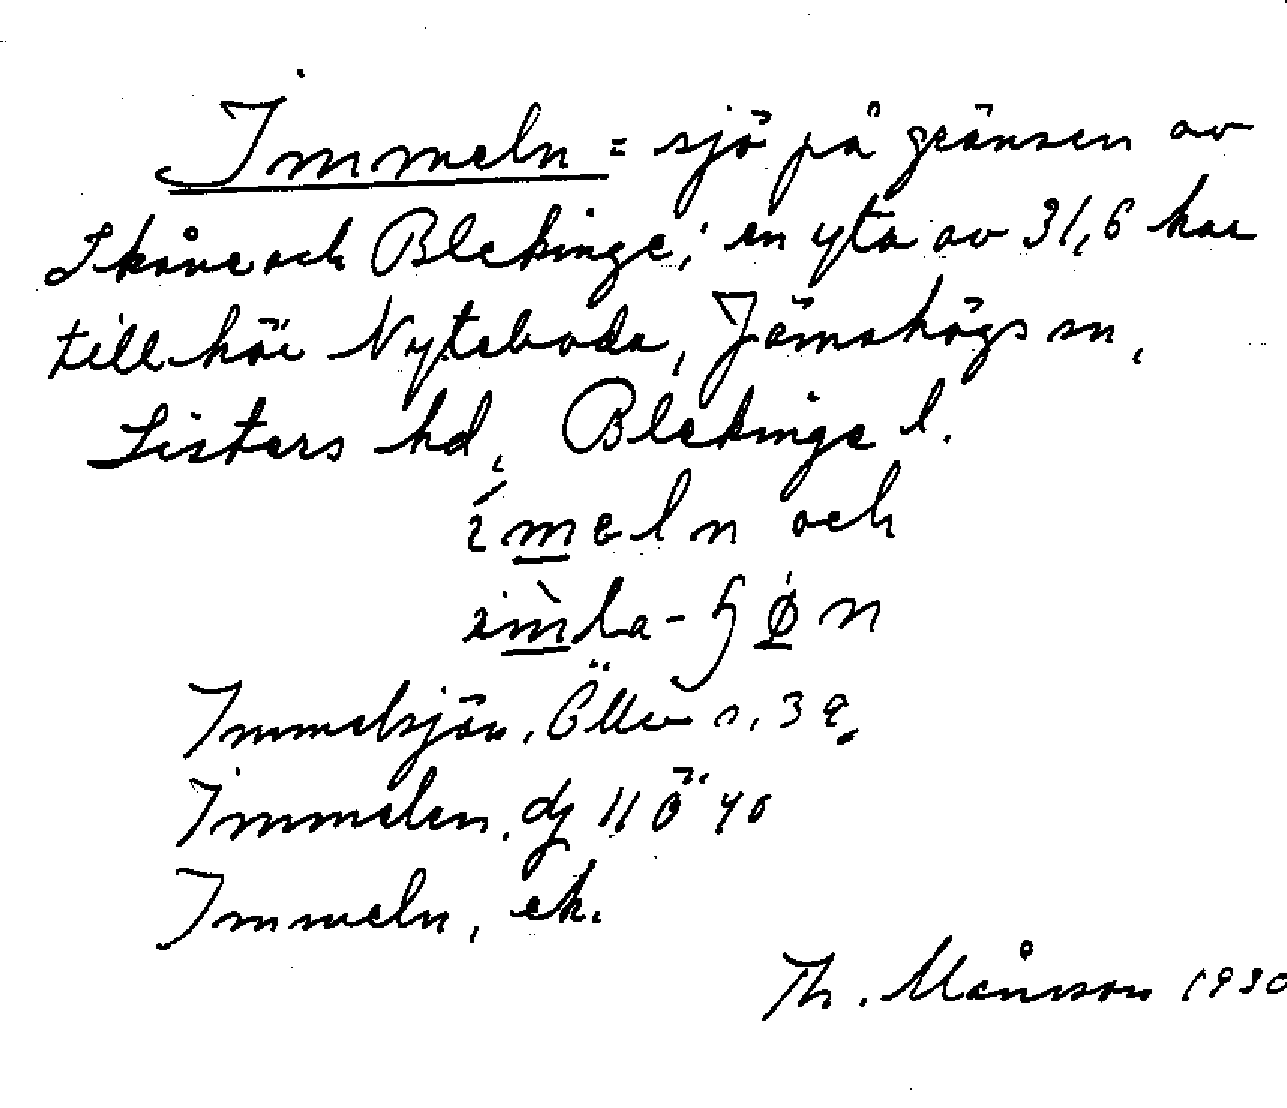 Immeln = sjö på gränsen av
Skåne och Blekinge; en yta av 31,6 har
tillhör Nyteboda, Jämshögs sn,
Listers hd, Blekinge l.
ímeln och
Immelsjön, s. 39
Immelen, dj 11 Ö 40
Immeln, ek.
Th. Månsson 1930